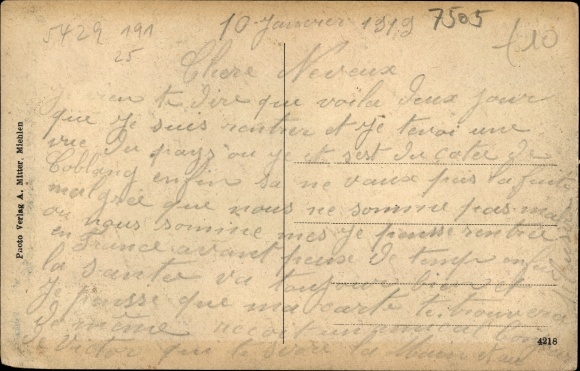 5429 191
25
10 Janvier 1919 7505
Chere Neveux
rien te dire que voila deux jour
que je suis rentrer et je tevoi une
vue du pays ou je et sest du coter de
Coblang enfin sa ne vaux pas la
malgré que nous ne somme pas mal
ou nous somme mes je pensse rentrer
en France avant peux de temp enfin
la santer va toujour bien et
je pensse que ma carte te trouvera
de même
Victor qui
Photo Verlag A. Mitter, Miehlen
4218